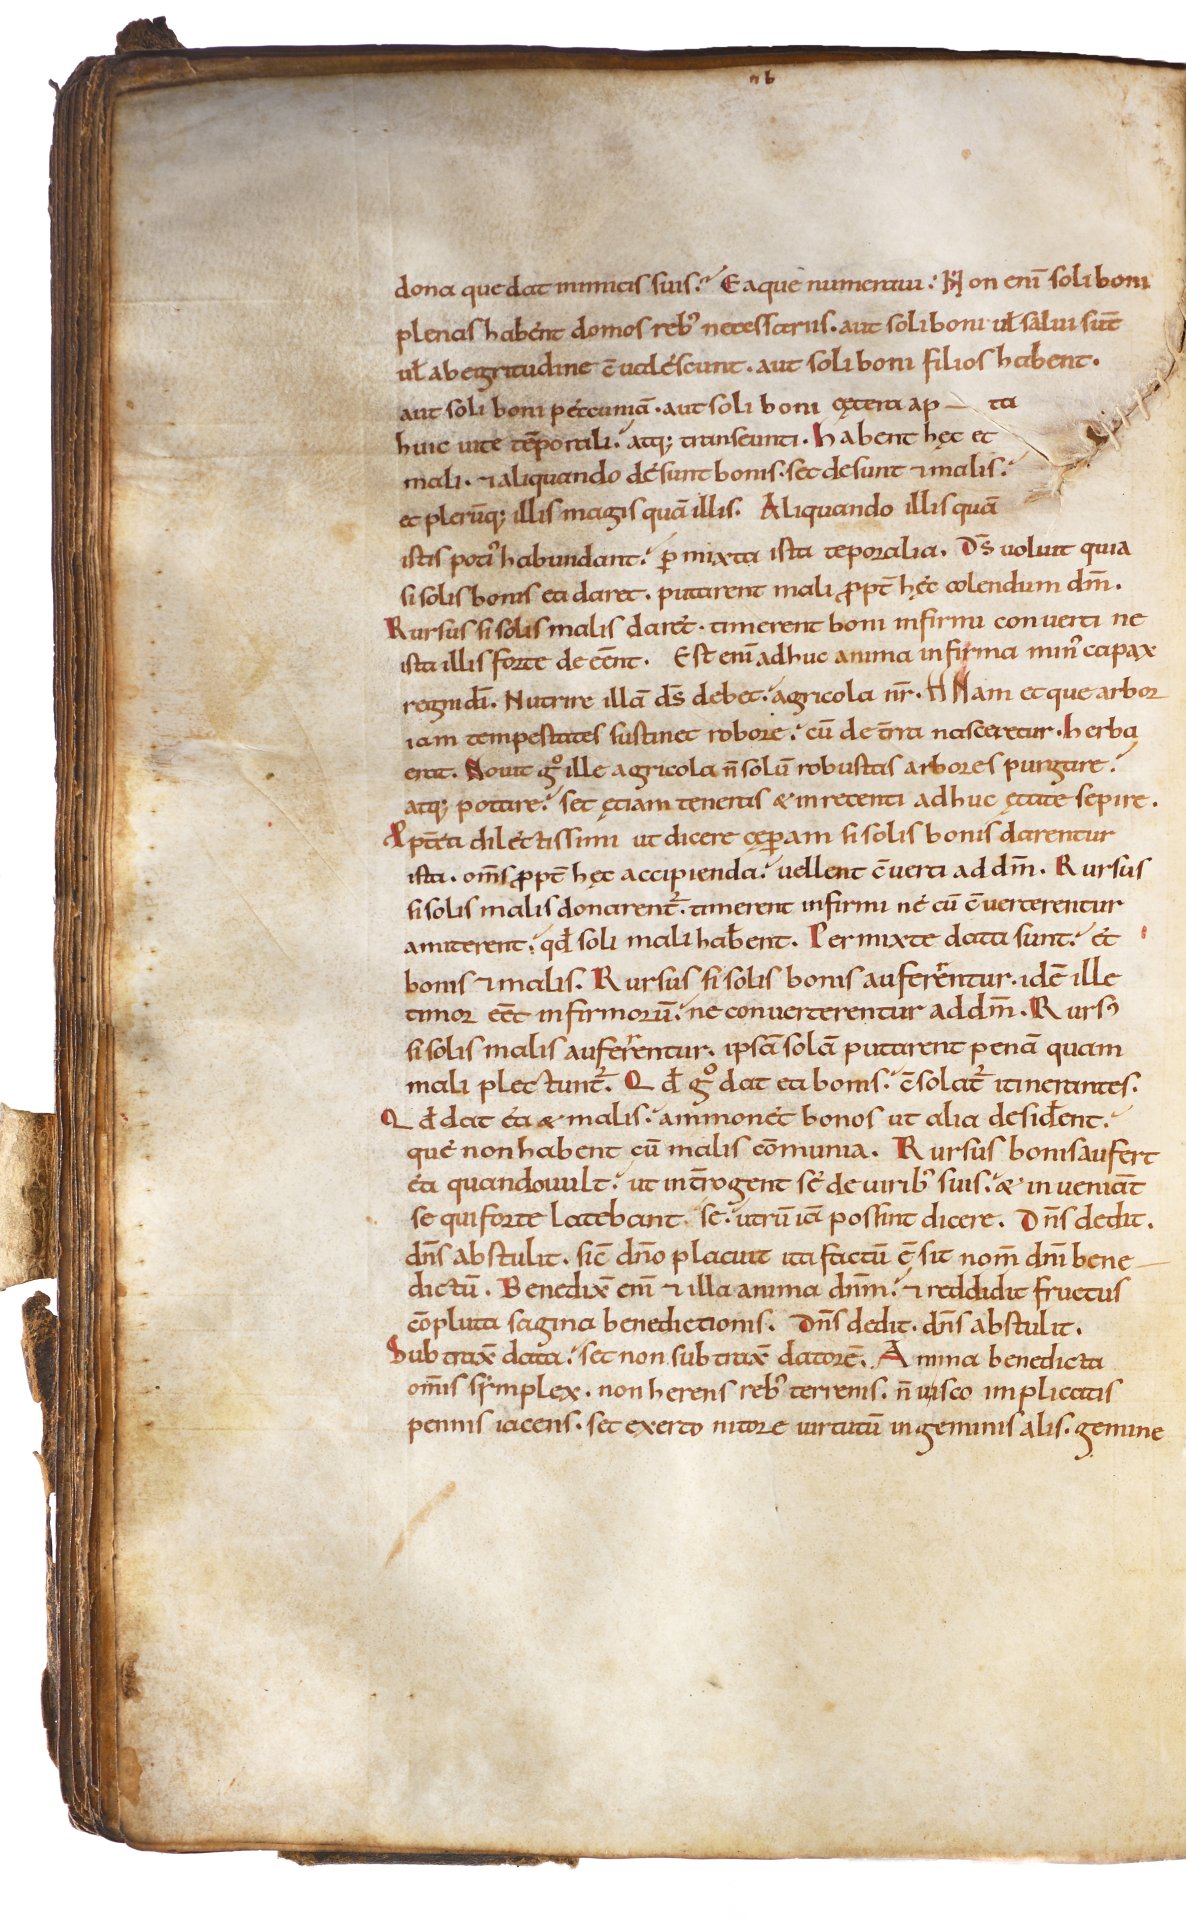 dona que dat inimicis suis. Ea que numeraui. Non eni̅ soli boni
plenas habent domos reb᾽ necessariis. aut soli boni ul̵ salui su̅t
ul̵ ab egritudine c̅ualéscunt. aut soli boni filios habent.
aut soli boni pécunia̅. aut soli boni cętera ap — ta
huic uite te̅porali. atq; transeunti. Habent hęc et
mali. & aliquando désunt bonis. set desunt & malis.
et pleru̅q; illis magis qua̅ illis. Aliquando illis qua̅
istis poti᾽ habundant. p̲mixta ista teporalia. D̅s uoluit quia
si solis bonis ea daret. putarent mali ꝓpt̅ hęc colendum dm̅.
Rursus si solis malis darét. timerent boni infirmi conuerti ne
ista illis forte dee̅e̅nt. Est eni̅ adhuc anima infirma min᾽ capax
regni di̅. Nutrire illa̅ d̅s debet. agricola nr̅. Nam et que arbor
iam tempestates sustinet robore. cu̅ de t̅rra nasceretur. herba
erat. Nouit gͦ ille agricola n̅ solu̅ robustas arbores purgare.
atq; potare. set ętiam teneras & in recenti adhuc ętate sepire.
p̅téa diléctissimi ut dicere cęp̲am si solis bonis darentur
ista. om̅s ꝓpt̅ hęc accipienda. uellent c̅uerti ad dm̅. Rursus
si solis malis donarent᾽. timerent infirmi né cu̅ c̅uerterentur
amiterent. qd̵ soli mali hab̵ent. Permixte data sunt. ét
bonis & malis. Rursus si solis bonis auferrentur. ide̅ ille
timor ee̅t infirmoru̅. ne conuerterentur ad dm̅. Rurs᾽
si solis malis auferrentur. ipsa̅ sola̅ putarent pena̅ quam
mali plectunt᾽. Qd̵ gͦ dat ea bonis. c̅solat᾽ itinerantes.
Qd̵ dat éa & malis. ammonét bonos ut alia desid̵ent.
qué non habent cu̅ malis co̅munia. Rursus bonis aufert
éa quando uult. ut int̅rogent sé de uirib᾽ suis. & inuenia̅t
se qui forte latebant se. utru̅ ia̅ possint dicere. Dn̅s dedit.
dn̅s abstulit. sic̅ dn̅o placuit ita factu̅ e̅ sit nom̅ dni̅ bene—
dictu̅. Benedix̅ eni̅ & illa anima dn̅m. & reddidit fructus
co̅pluta sagina benedictionis. Dn̅s dedit. dn̅s abstulit.
Subtrax̅ data. set non subtrax̅ datore̅. Anima benedicta
om̅is symplex. non herens reb᾽ terrenis. n̅ uisco implicatis
pennis iacens. set exerto nitore uirtutu̅ in geminis alis. gemine